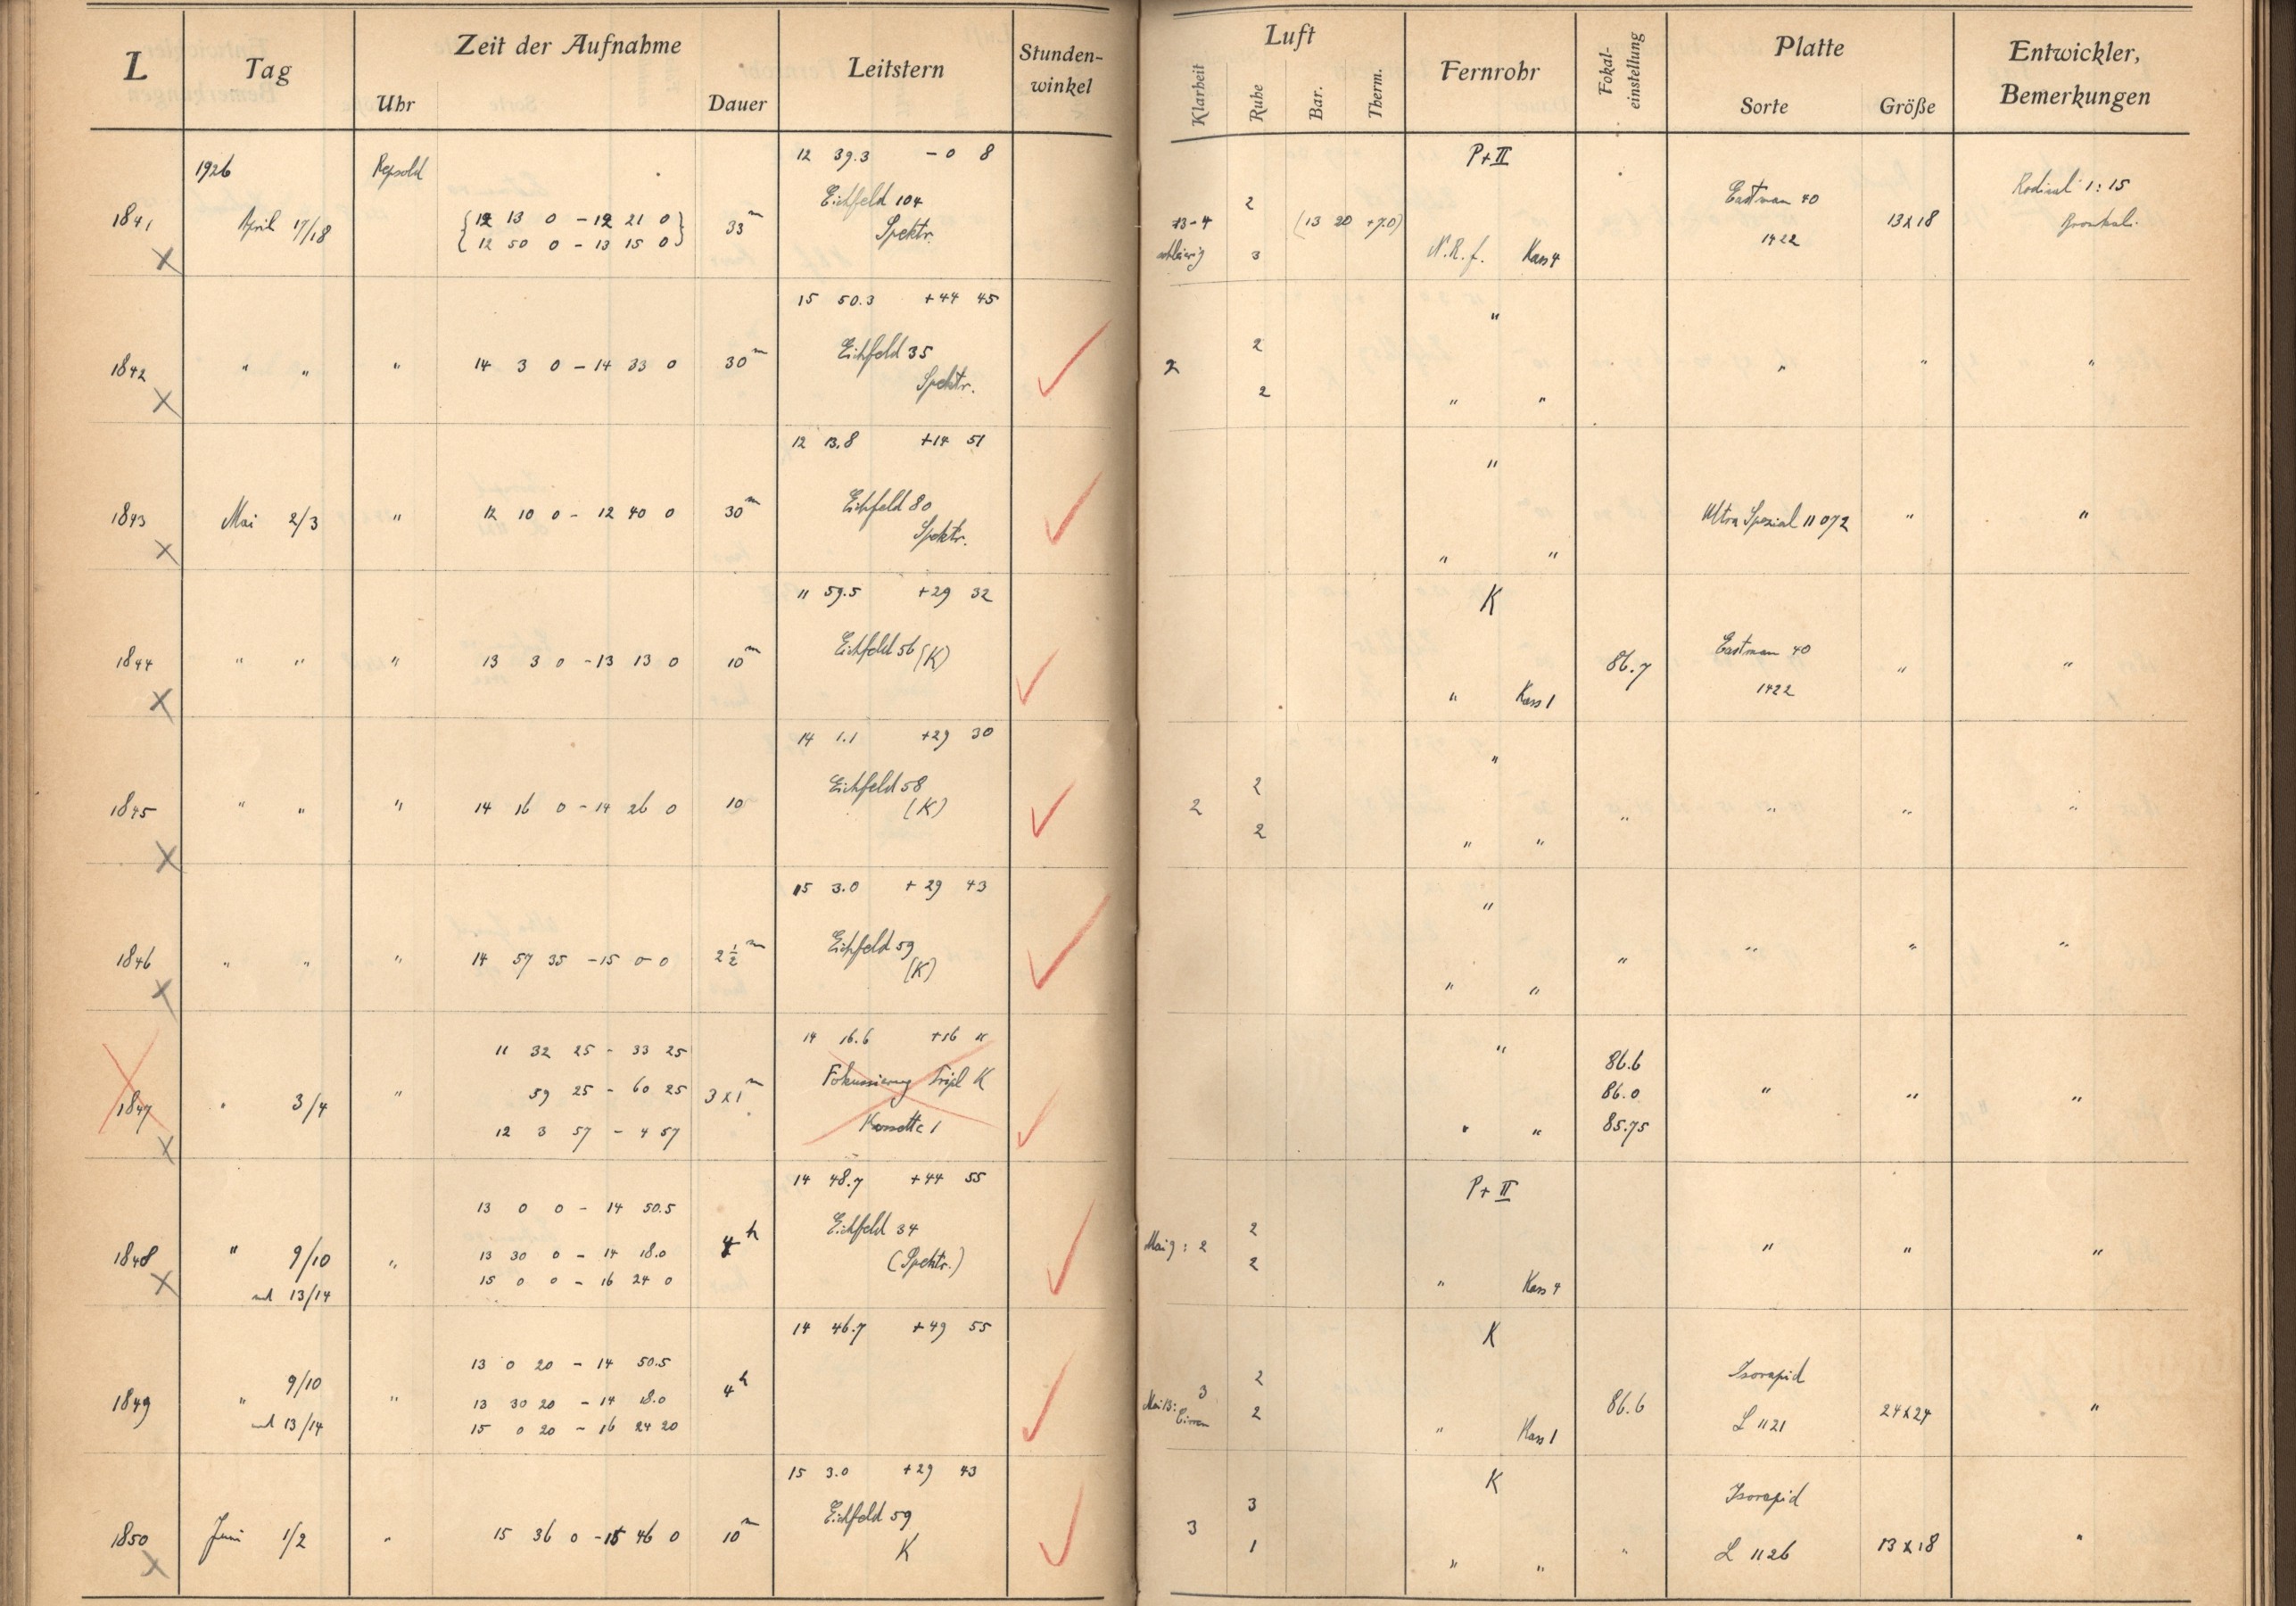 L Tag Zeit der Aufnahme Leitstern Stunden-winkel Luft Fernrohr Fokal-einstellung Platte Entwickler, Bemerkungen
Uhr Dauer Klarheit Ruhe Bar. Therm. Sorte Größe
12 39.3 -0 8 P+II
1926 Repsold Eichfeld 104 2 Eastman 40 Rodinal 1:15
1841 April 17/18 {12 13 0 - 12 21 0} 33m Spektr. 13-4 (13 20 +7.0) 1422 13x18
{12 50 0 - 13 15 0} schleierig 3 N.R.f. Kass 4
15 50.3 +44 45 "
Eichfeld 35 2
1842 " " " 14 3 0 - 14 33 0 30m Spektr. 2 " " "
2 " "
12 13.8 +14 51 "
Eichfeld 80
1843 Mai 2/3 " 12 10 0 - 12 40 0 30m Spektr. Ultra Spezial 11072 " "
" "
11 59.5 +29 32 K
Eichfeld 56 (K) Eastman 40
1844 " " " 13 3 0 - 13 13 0 10m 86.7 " "
" Kass 1 1422
14 1.1 +29 30 "
Eichfeld 58 2
1845 " " " 14 16 0 - 14 26 0 10 (K) 2 " " " "
2 " "
15 3.0 +29 43 "
Eichfeld 59
1846 " " " 14 57 35 - 15 0 0 2½m (K) " " " "
" "
14 16.6 +16 11 "
11 32 25 - 33 25 Fokussierung Tripl K 86.6
1847 " 3/4 " 59 25 - 60 25 3x1m 86.0 " " "
12 3 57 - 4 57 Kassette 1 " " 85.75
14 48.7 +44 55 P+II
13 0 0 - 14 50.5 Eichfeld 34 2
1848 " 9/10 " 13 30 0 - 14 18.0 4h (Spektr.) Mai 9: 2 2 " " "
und 13/14 15 0 0 - 16 24 0 " Kass 4
14 46.7 +49 55 K
13 0 20 - 14 50.5 Isorapid
1849 " 9/10 " 13 30 20 - 14 18.0 4h 3 2 86.6 24x24 "
und 13/14 15 0 20 - 16 24 20 Mai 13: Cirren 2 " Kass 1 L 1121
15 3.0 +29 43 K
Eichfeld 59 3 Isorapid
1850 Juni 1/2 " 15 36 0 - 15 46 0 10m K 3 1 " L 1126 13x18 "
" "